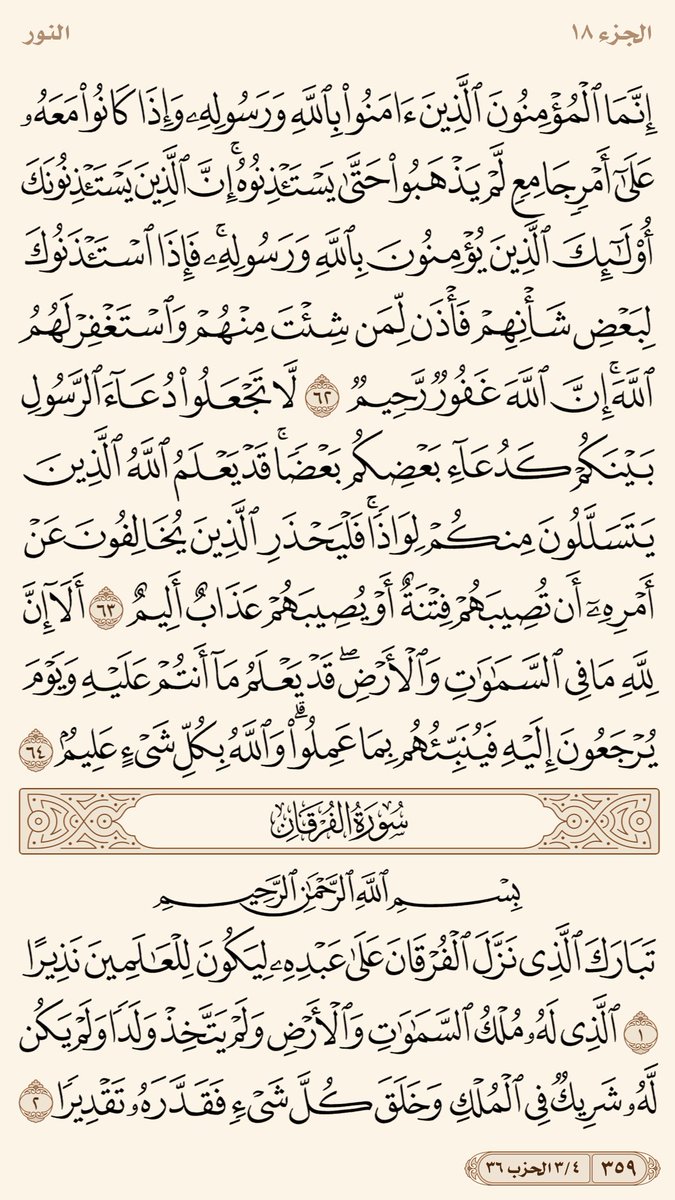 الجزء ١٨ النور
إِنَّمَا ٱلْمُؤْمِنُونَ ٱلَّذِينَ ءَامَنُوا۟ بِٱللَّهِ وَرَسُولِهِۦ وَإِذَا كَانُوا۟ مَعَهُۥ
عَلَىٰٓ أَمْرٍ جَامِعٍ لَّمْ يَذْهَبُوا۟ حَتَّىٰ يَسْتَـْٔذِنُوهُ ۚ إِنَّ ٱلَّذِينَ يَسْتَـْٔذِنُونَكَ
أُو۟لَـٰٓئِكَ ٱلَّذِينَ يُؤْمِنُونَ بِٱللَّهِ وَرَسُولِهِۦ ۚ فَإِذَا ٱسْتَـْٔذَنُوكَ
لِبَعْضِ شَأْنِهِمْ فَأْذَن لِّمَن شِئْتَ مِنْهُمْ وَٱسْتَغْفِرْ لَهُمُ
ٱللَّهَ ۚ إِنَّ ٱللَّهَ غَفُورٌ رَّحِيمٌ ٦٢ لَّا تَجْعَلُوا۟ دُعَآءَ ٱلرَّسُولِ
بَيْنَكُمْ كَدُعَآءِ بَعْضِكُم بَعْضًا ۚ قَدْ يَعْلَمُ ٱللَّهُ ٱلَّذِينَ
يَتَسَلَّلُونَ مِنكُمْ لِوَاذًا ۚ فَلْيَحْذَرِ ٱلَّذِينَ يُخَالِفُونَ عَنْ
أَمْرِهِۦٓ أَن تُصِيبَهُمْ فِتْنَةٌ أَوْ يُصِيبَهُمْ عَذَابٌ أَلِيمٌ ٦٣ أَلَآ إِنَّ
لِلَّهِ مَا فِى ٱلسَّمَـٰوَٰتِ وَٱلْأَرْضِ ۖ قَدْ يَعْلَمُ مَآ أَنتُمْ عَلَيْهِ وَيَوْمَ
يُرْجَعُونَ إِلَيْهِ فَيُنَبِّئُهُم بِمَا عَمِلُوا۟ ۗ وَٱللَّهُ بِكُلِّ شَىْءٍ عَلِيمٌۢ ٦٤
سُورَةُ الفُرْقَانِ
بِسْمِ ٱللَّهِ ٱلرَّحْمَـٰنِ ٱلرَّحِيمِ
تَبَارَكَ ٱلَّذِى نَزَّلَ ٱلْفُرْقَانَ عَلَىٰ عَبْدِهِۦ لِيَكُونَ لِلْعَـٰلَمِينَ نَذِيرًا
١ ٱلَّذِى لَهُۥ مُلْكُ ٱلسَّمَـٰوَٰتِ وَٱلْأَرْضِ وَلَمْ يَتَّخِذْ وَلَدًا وَلَمْ يَكُن
لَّهُۥ شَرِيكٌ فِى ٱلْمُلْكِ وَخَلَقَ كُلَّ شَىْءٍ فَقَدَّرَهُۥ تَقْدِيرًا ٢
٣٥٩ ٣/٤ الحزب ٣٦